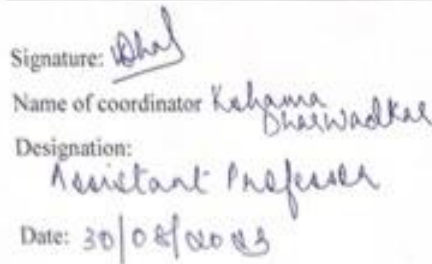 Signature: Dhal
Name of coordinator Kshama
Dharwadkar
Designation:
Assistant Professor
Date: 30/08/2023